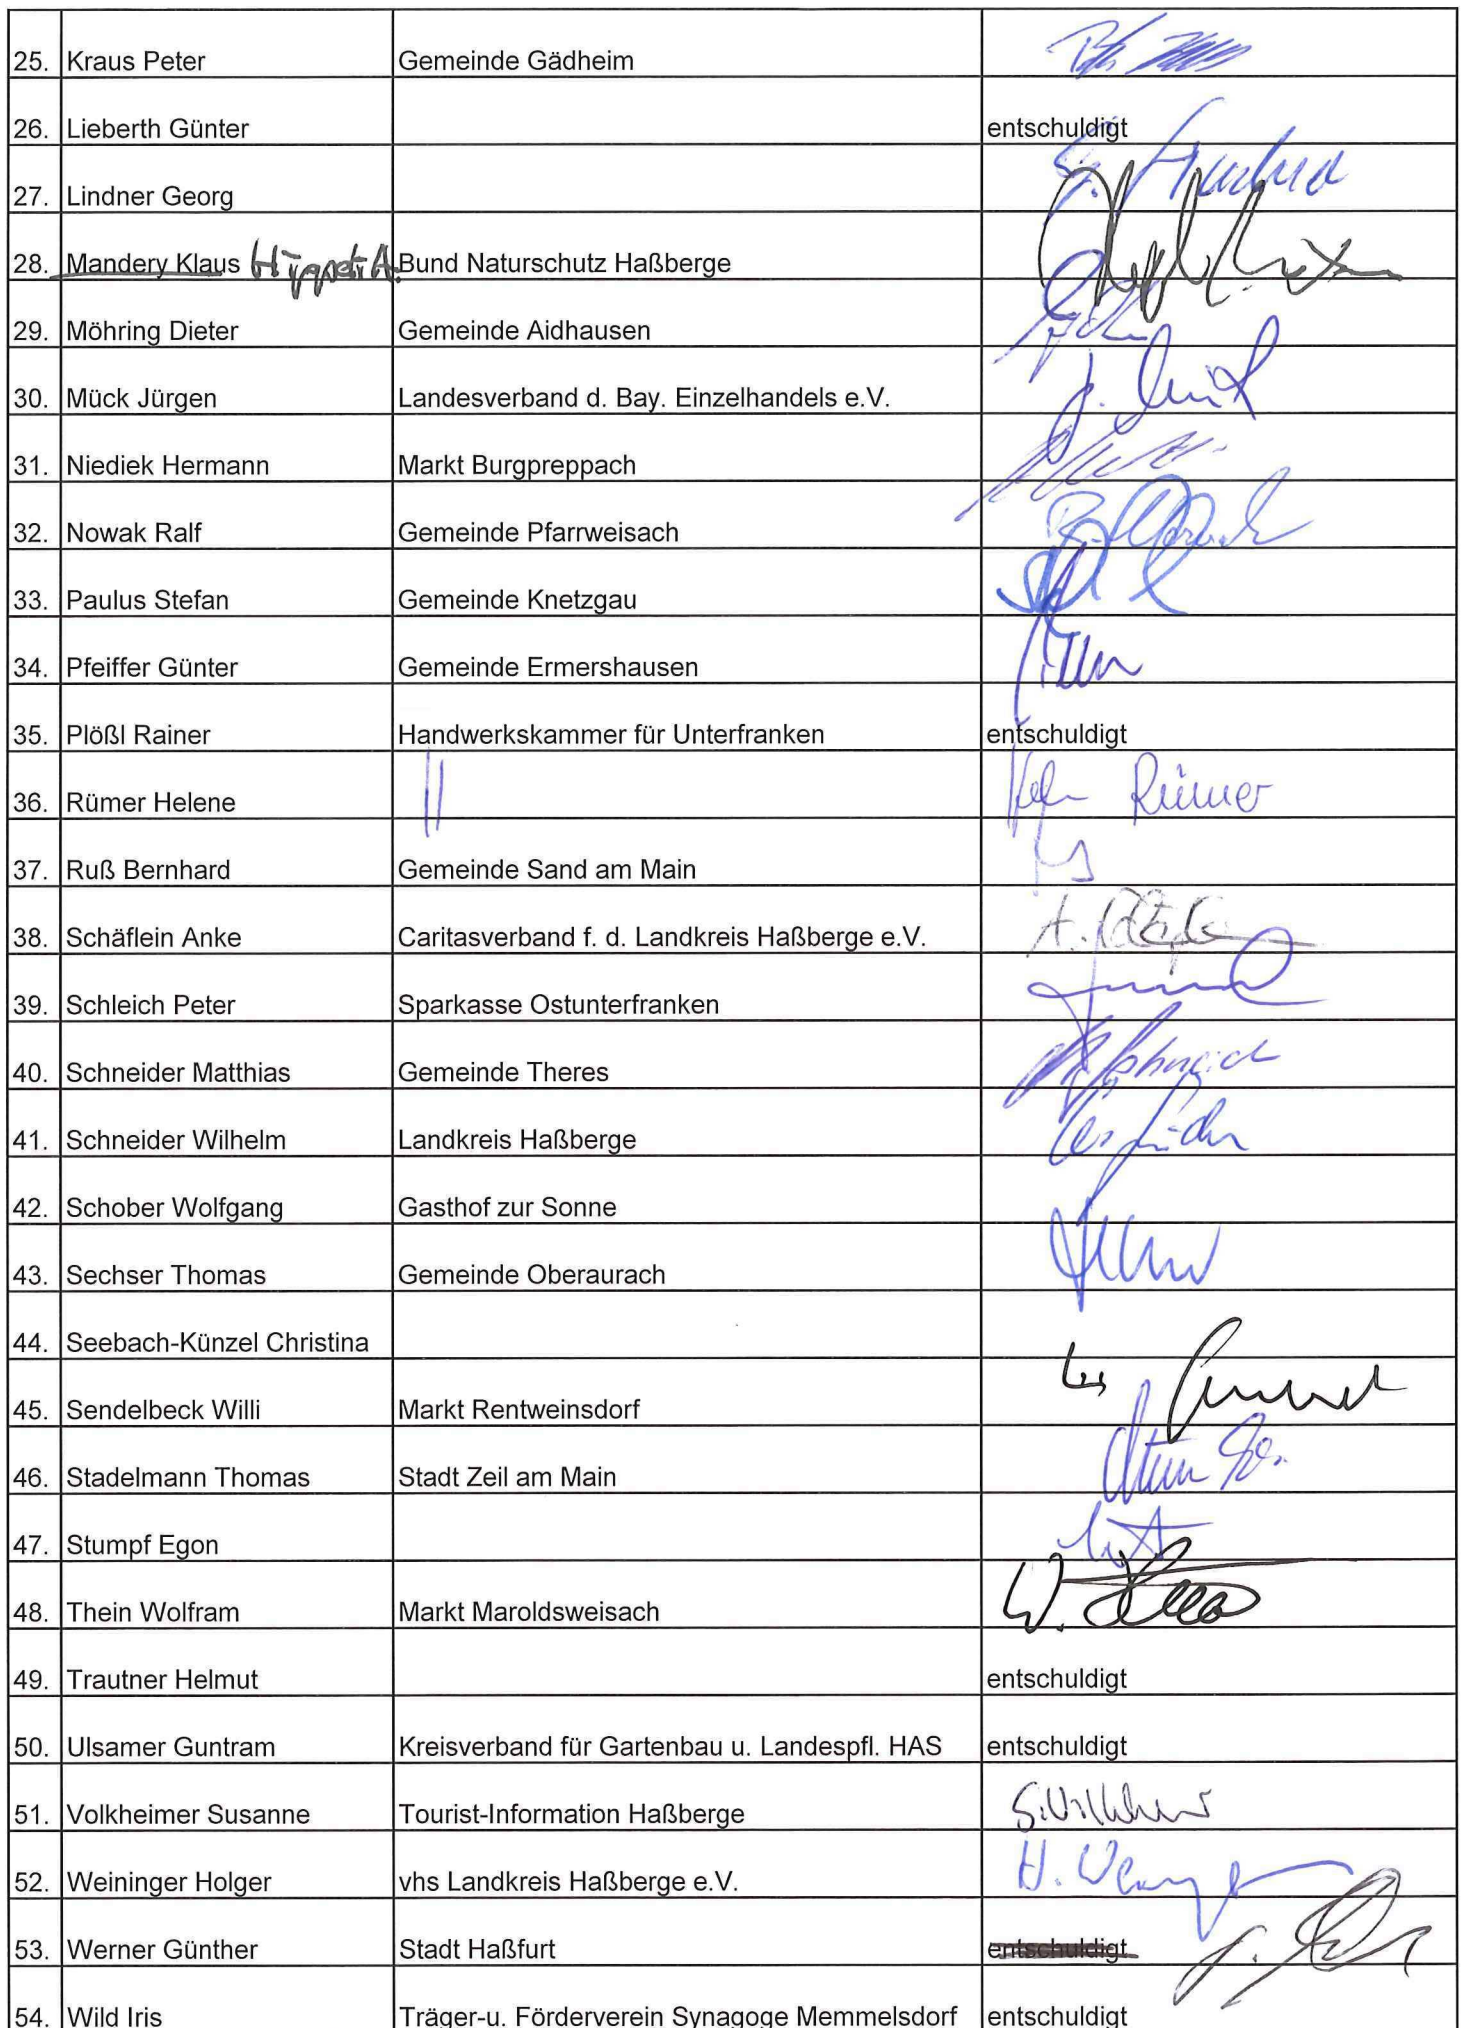 25. Kraus Peter Gemeinde Gädheim
26. Lieberth Günter entschuldigt
27. Lindner Georg
28. Mandery Klaus Bund Naturschutz Haßberge
29. Möhring Dieter Gemeinde Aidhausen
30. Mück Jürgen Landesverband d. Bay. Einzelhandels e.V.
31. Niediek Hermann Markt Burgpreppach
32. Nowak Ralf Gemeinde Pfarrweisach
33. Paulus Stefan Gemeinde Knetzgau
34. Pfeiffer Günter Gemeinde Ermershausen
35. Plößl Rainer Handwerkskammer für Unterfranken entschuldigt
36. Rümer Helene Rümer
37. Ruß Bernhard Gemeinde Sand am Main
38. Schäflein Anke Caritasverband f. d. Landkreis Haßberge e.V.
39. Schleich Peter Sparkasse Ostunterfranken
40. Schneider Matthias Gemeinde Theres
41. Schneider Wilhelm Landkreis Haßberge
42. Schober Wolfgang Gasthof zur Sonne
43. Sechser Thomas Gemeinde Oberaurach
44. Seebach-Künzel Christina
45. Sendelbeck Willi Markt Rentweinsdorf
46. Stadelmann Thomas Stadt Zeil am Main
47. Stumpf Egon
48. Thein Wolfram Markt Maroldsweisach
49. Trautner Helmut entschuldigt
50. Ulsamer Guntram Kreisverband für Gartenbau u. Landespfl. HAS entschuldigt
51. Volkheimer Susanne Tourist-Information Haßberge
52. Weininger Holger vhs Landkreis Haßberge e.V.
53. Werner Günther Stadt Haßfurt entschuldigt
54. Wild Iris Träger-u. Förderverein Synagoge Memmelsdorf entschuldigt